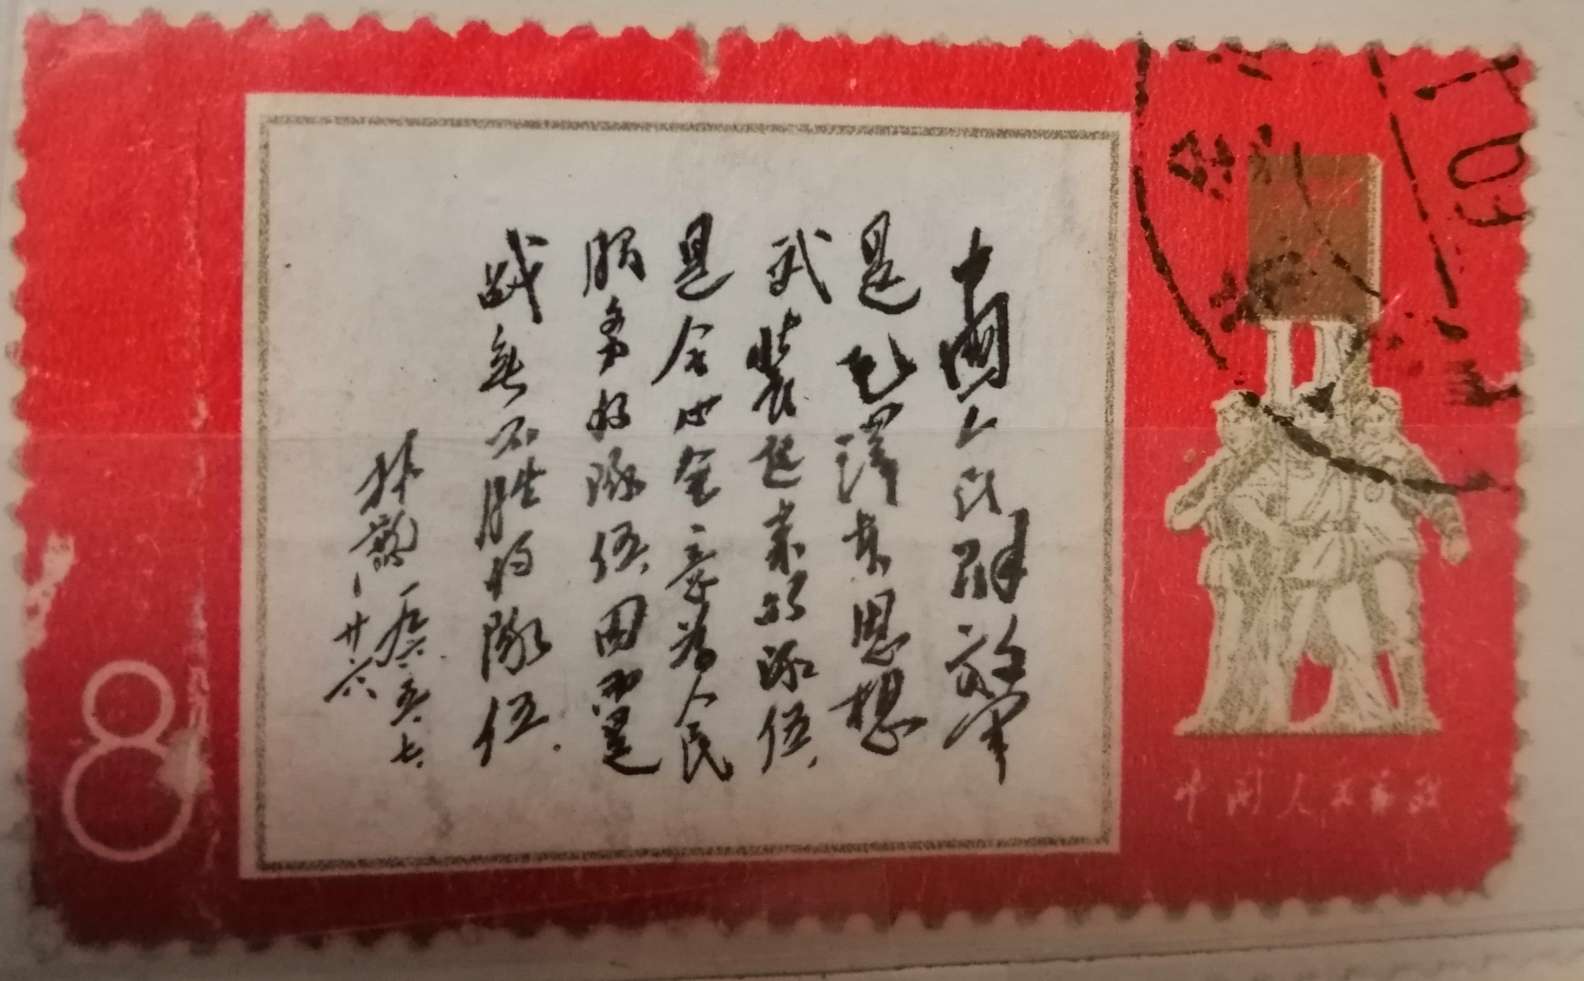 中國人民解放軍
是毛澤東思想
武裝起来的隊伍，
是全心全意为人民
服务的隊伍，因而是
战無不胜的隊伍．
林彪 一九六五．七．
廿六
8
中国人民邮政